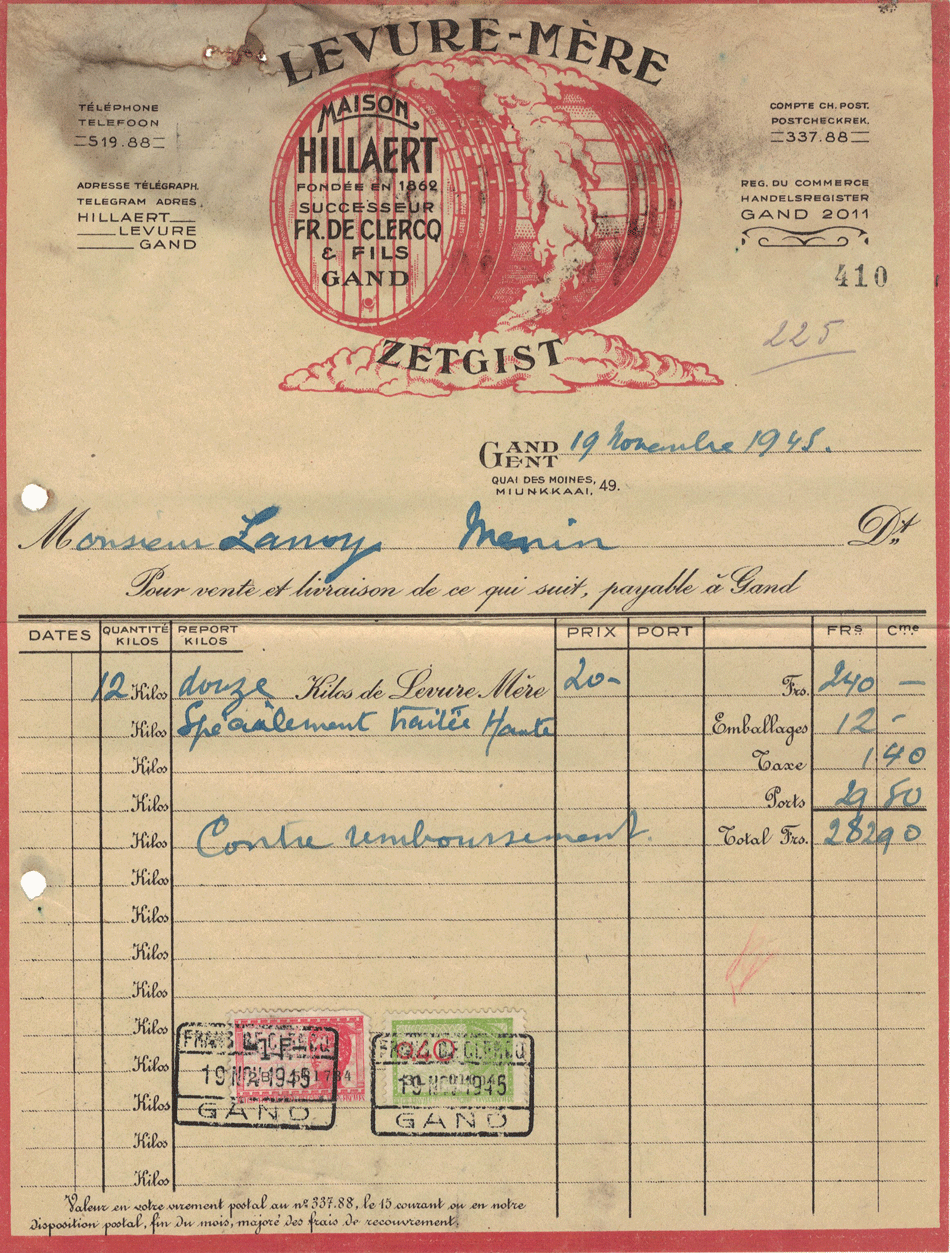 LEVURE-MÈRE
MAISON
HILLAERT
FONDÉE EN 1862
SUCCESSEUR
FR. DE CLERCQ
& FILS
GAND
ZETGIST
TÉLÉPHONE
TELEFOON
519.88
ADRESSE TÉLÉGRAPH.
TELEGRAM ADRES.
HILLAERT
LEVURE
GAND
COMPTE CH. POST.
POSTCHECKREK.
337.88
REG. DU COMMERCE
HANDELSREGISTER
GAND 2011
410
225
GAND
GENT
19 Novembre 1945.
QUAI DES MOINES,
MIUNKKAAI, 49.
Monsieur Lannoy Menin Dt
Pour vente et livraison de ce qui suit, payable à Gand
DATES QUANTITÉ KILOS REPORT KILOS PRIX PORT FRS CME
12 Kilos douze Kilos de Levure Mère 20- Frs. 240 —
Kilos Spécialement traitée Haute Emballages 12 -
Kilos Taxe 1 40
Kilos Ports 29 50
Kilos Contre remboursement. Total Frs. 282 90
Kilos
Kilos
Kilos
Kilos
Kilos
Kilos
Kilos
Kilos
Kilos
FRANS DE CLERCQ
1F
19 NOV 1945
GAND
FRANS DE CLERCQ
040
19 NOV 1945
GAND
Valeur en votre virement postal au no 337.88, le 15 courant ou en notre
disposition postal, fin du mois, majoré des frais de recouvrement.